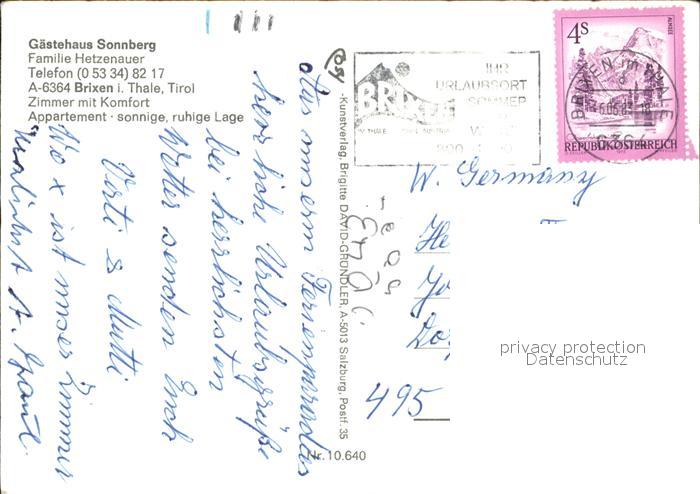 Gästehaus Sonnberg
Familie Hetzenauer
Telefon (0 53 34) 82 17
A-6364 Brixen i. Thale, Tirol
Zimmer mit Komfort
Appartement · sonnige, ruhige Lage
Aus unserm Ferienparadies
herrliche Urlaubsgrüße
bei herrlichstem
Wetter senden Euch
Vati & Mutti
Wo x ist unser Zimmer
-Kunstverlag, Brigitte DAVID-GRÜNDLER, A-5013 Salzburg, Postf. 35
Nr. 10.640
BRIXEN
IM THALE
IHR
URLAUBSORT
SOMMER
4S
ALMSEE
REPUBLIK ÖSTERREICH
BRIXEN im THALE
6364
W. Germany
He
Yo
Do
495
privacy protection
Datenschutz